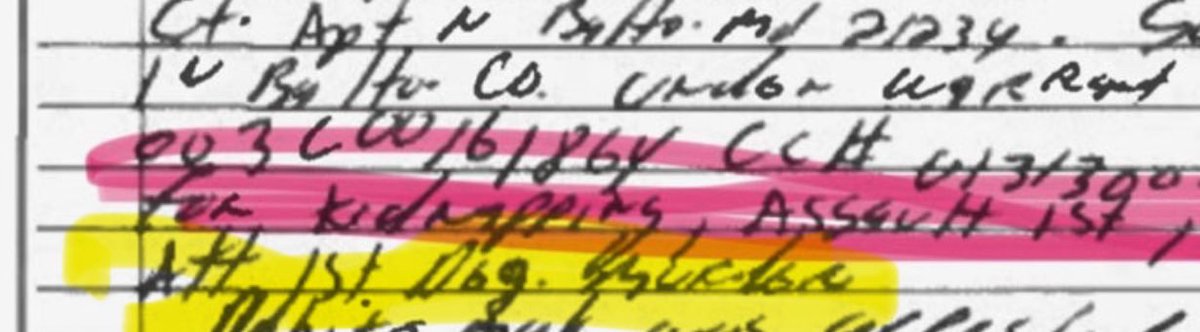 Ct. Apt N Balto. Md 21234. S
IN Balto Co. under warrant
003C0016186Y CC#
for kidnapping, Assault 1st,
Att. 1st. Deg. Burglary
was